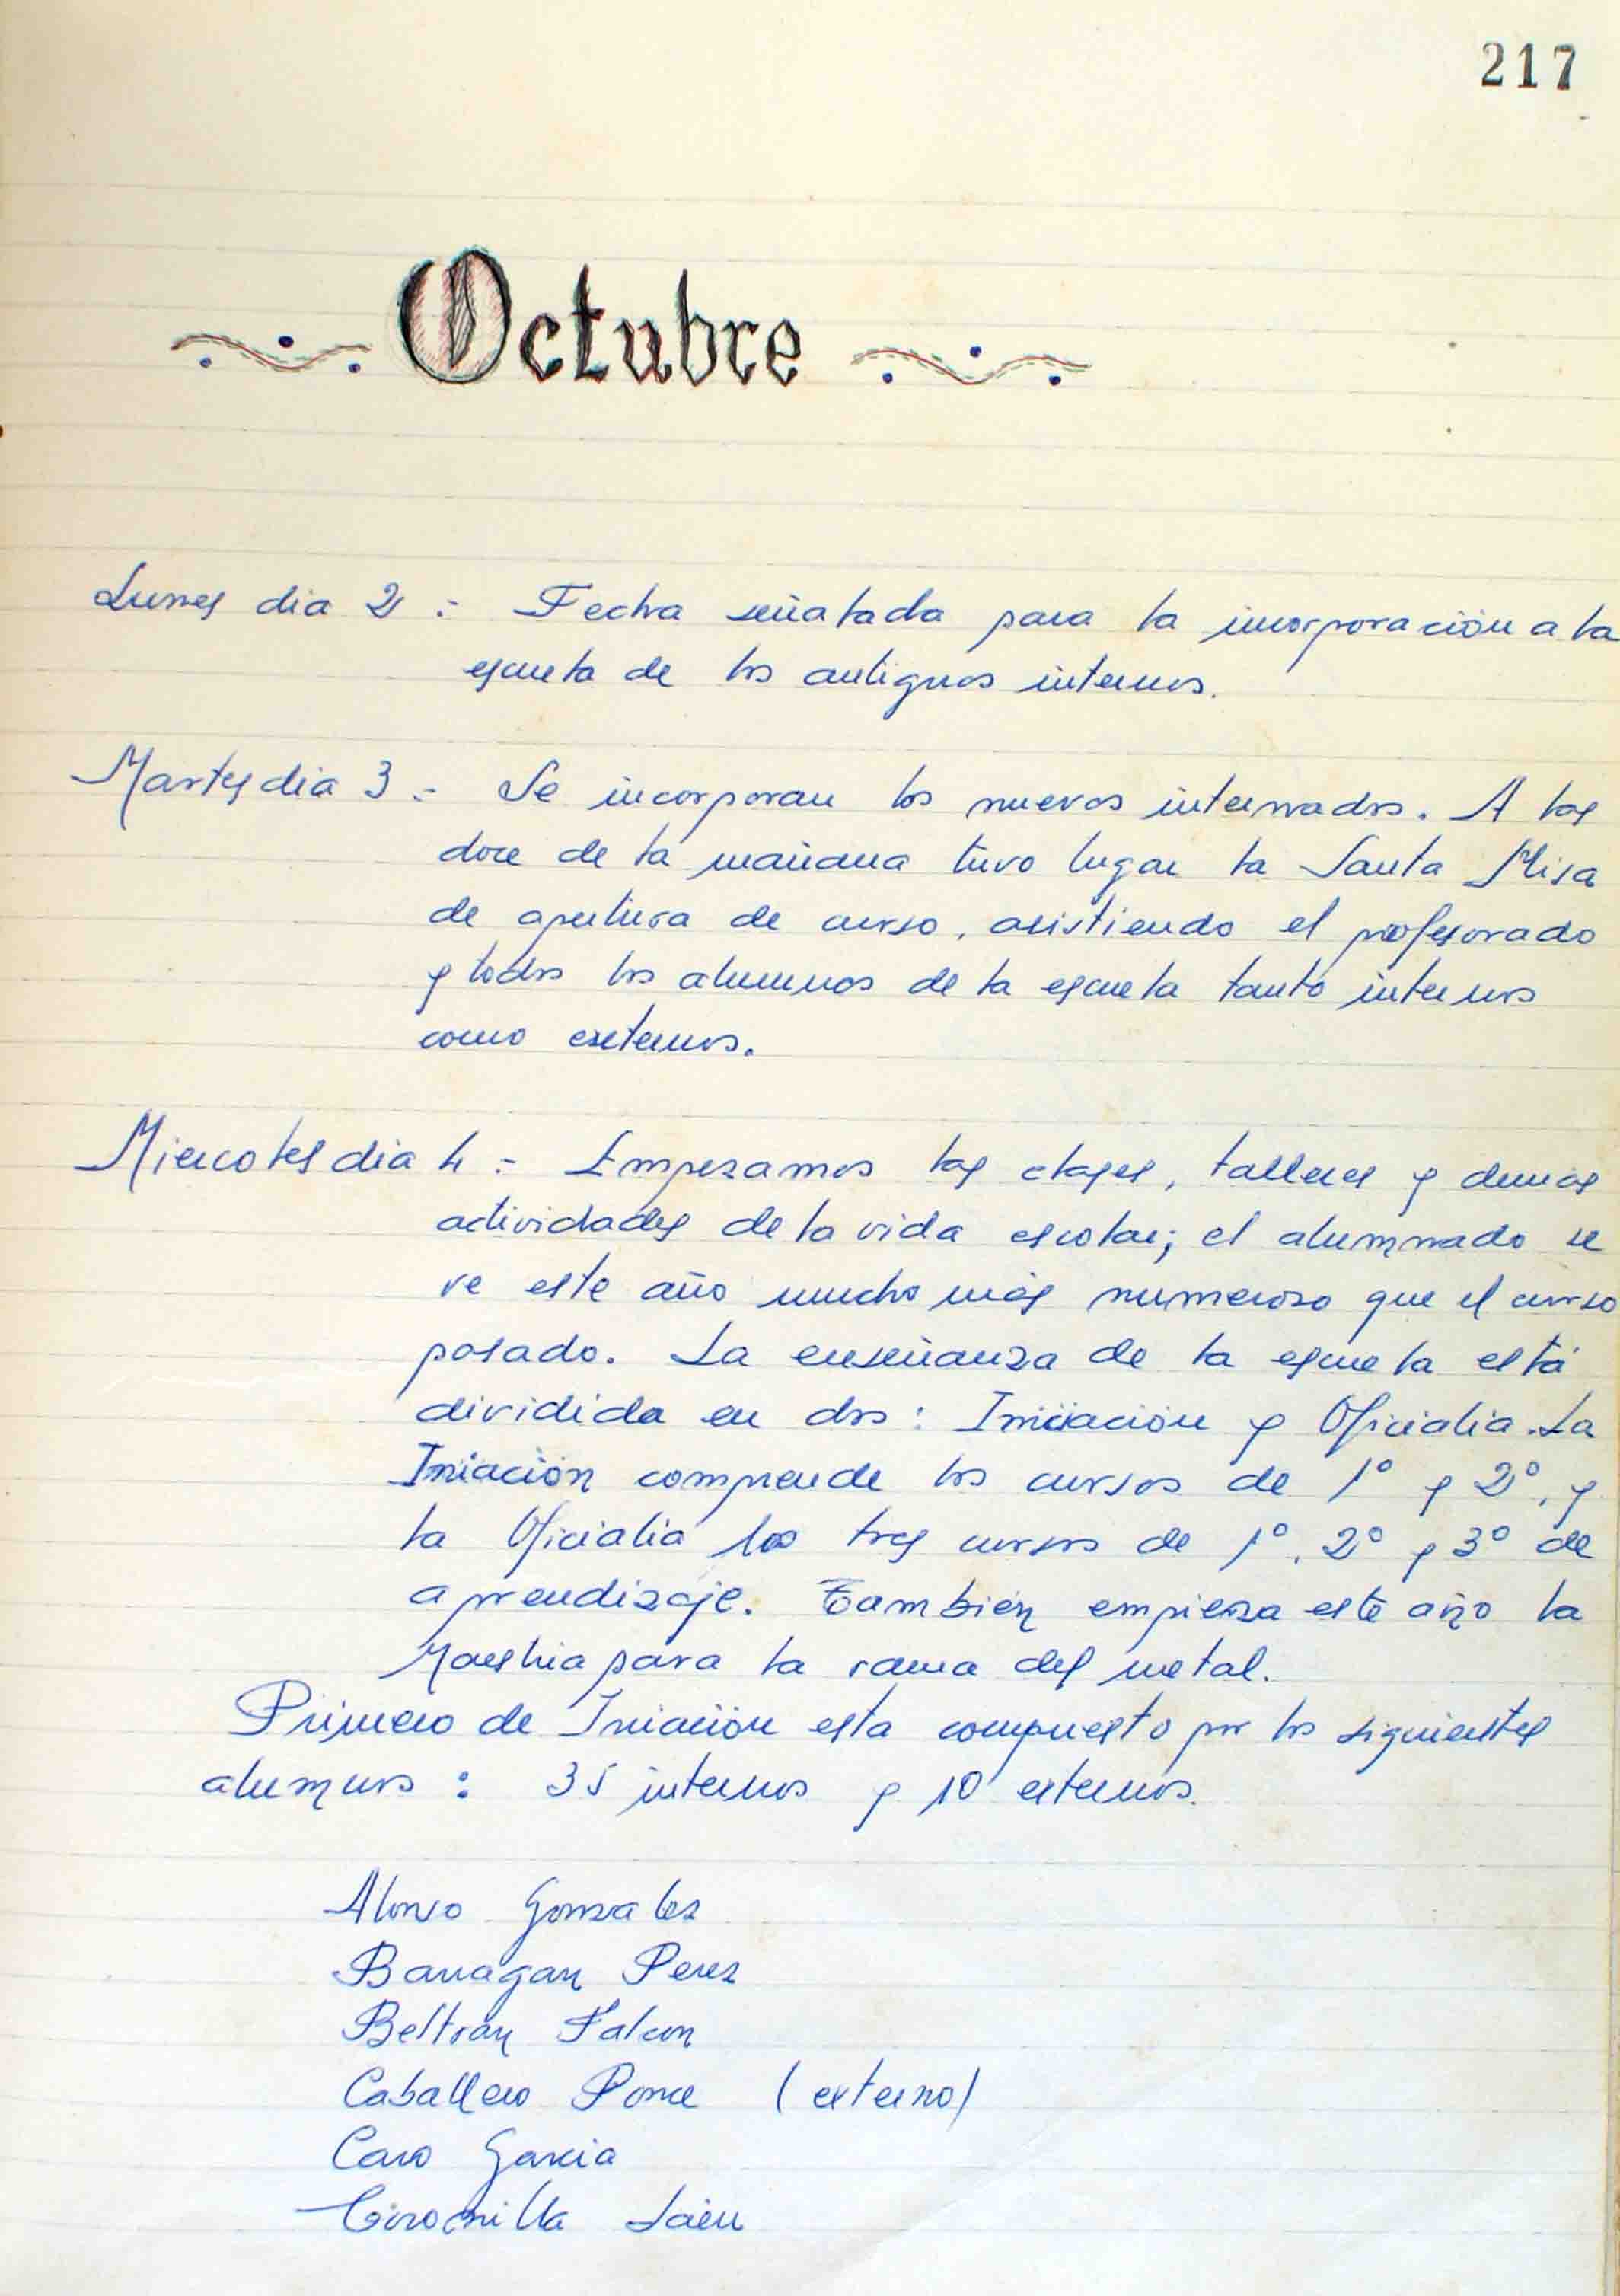 217
Octubre
Lunes dia 2 := Fecha señalada para la incorporación a la
escuela de los antiguos internos.
Martes dia 3 := Se incorporan los nuevos internados. A las
doce de la mañana tuvo lugar la Santa Misa
de apertura de curso, asistiendo el profesorado
y todos los alumnos de la escuela tanto internos
como externos.
Miercoles dia 4 := Empezamos las clases, talleres y demas
actividades de la vida escolar; el alumnado se
ve este año mucho más numeroso que el curso
pasado. La enseñanza de la escuela está
dividida en dos: Iniciación y Oficialia. La
Iniación comprende los cursos de 1º y 2º, y
la Oficialia los tres cursos de 1º, 2º y 3º de
aprendizaje. También empieza este año la
Maestria para la rama del metal.
Primero de Iniación esta compuesto por los siguientes
alumnos : 35 internos y 10 externos.
Alonso Gonzalez
Barragan Perez
Beltran Falcon
Caballero Ponce (externo)
Caro Garcia
Jaén